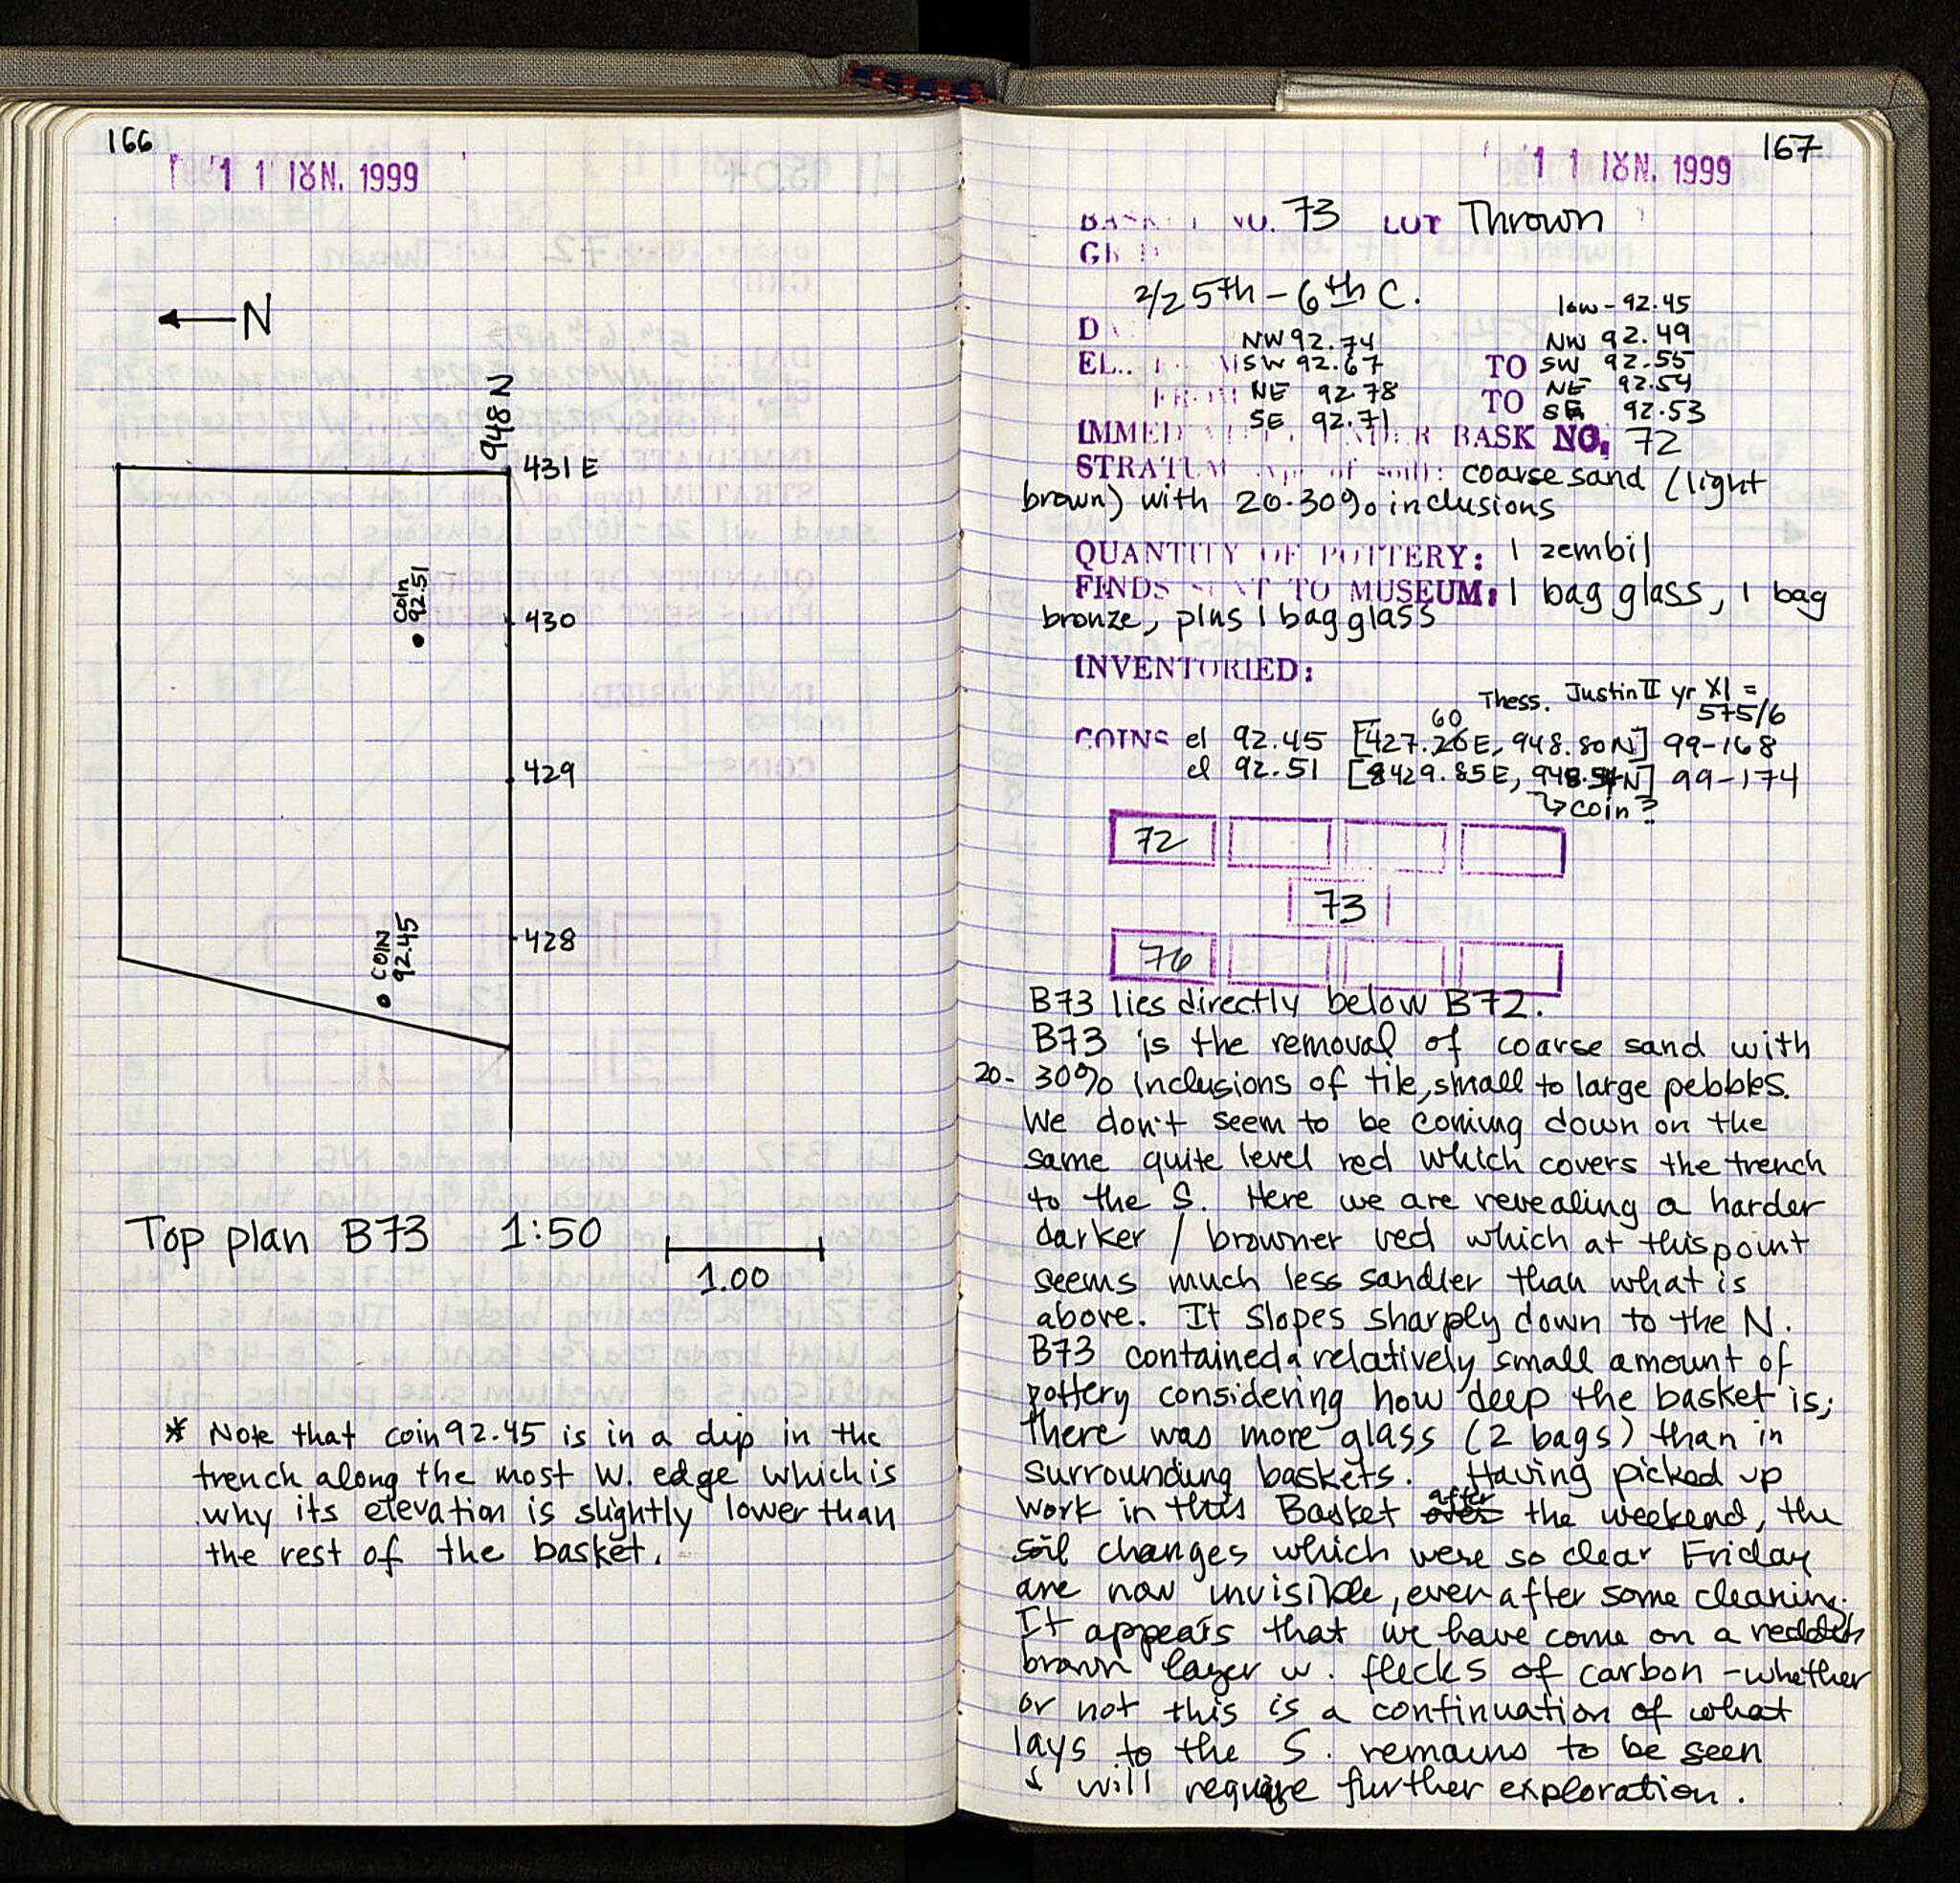 166
11 ΙΟΥΝ. 1999
N
948 N
431 E
Coin
92.51
430
429
COIN
92.45
428
Top plan B73 1:50
1.00
* Note that coin 92.45 is in a dip in the
trench along the most W. edge which is
why its elevation is slightly lower than
the rest of the basket.
167
11 ΙΟΥΝ. 1999
BASKET NO. 73 LOT Thrown
2/2 5th - 6th C.
low - 92.45
NW 92.74 NW 92.49
SW 92.67 TO SW 92.55
FROM NE 92.78 TO NE 92.54
SE 92.71 SE 92.53
IMMEDIATELY UNDER BASK NO. 72
STRATUM (type of soil): coarse sand (light
brown) with 20-30% inclusions
QUANTITY OF POTTERY: 1 zembil
FINDS SENT TO MUSEUM: 1 bag glass, 1 bag
bronze, plus 1 bag glass
INVENTORIED:
Thess. Justin II yr XI =
575/6
60
COINS el 92.45 [427.26E, 948.80N] 99-168
el 92.51 [8429.85E, 948.54N] 99-174
↳ coin?
72
73
76
B73 lies directly below B72.
B73 is the removal of coarse sand with
20-30% inclusions of tile, small to large pebbles.
We don't seem to be coming down on the
same quite level red which covers the trench
to the S. Here we are revealing a harder
darker / browner red which at this point
seems much less sandier than what is
above. It slopes sharply down to the N.
B73 contained a relatively small amount of
pottery considering how deep the basket is;
there was more glass (2 bags) than in
surrounding baskets. Having picked up
work in this Basket after the weekend, the
soil changes which were so clear Friday
are now invisible, even after some cleaning.
It appears that we have come on a reddish
brown layer w. flecks of carbon - whether
or not this is a continuation of what
lays to the S. remains to be seen
& will require further exploration.